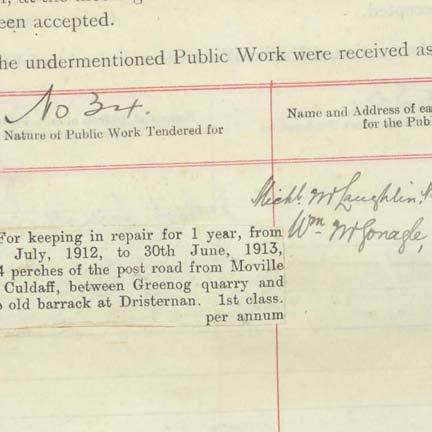 een accepted.
he undermentioned Public Work were received as
No 34.
Nature of Public Work Tendered for
Name and Address of ea
for the Publ
Michl. McLaughlin,
Wm McGonagle,
For keeping in repair for 1 year, from
July, 1912, to 30th June, 1913,
4 perches of the post road from Moville
Culdaff, between Greenog quarry and
old barrack at Dristernan. 1st class.
per annum